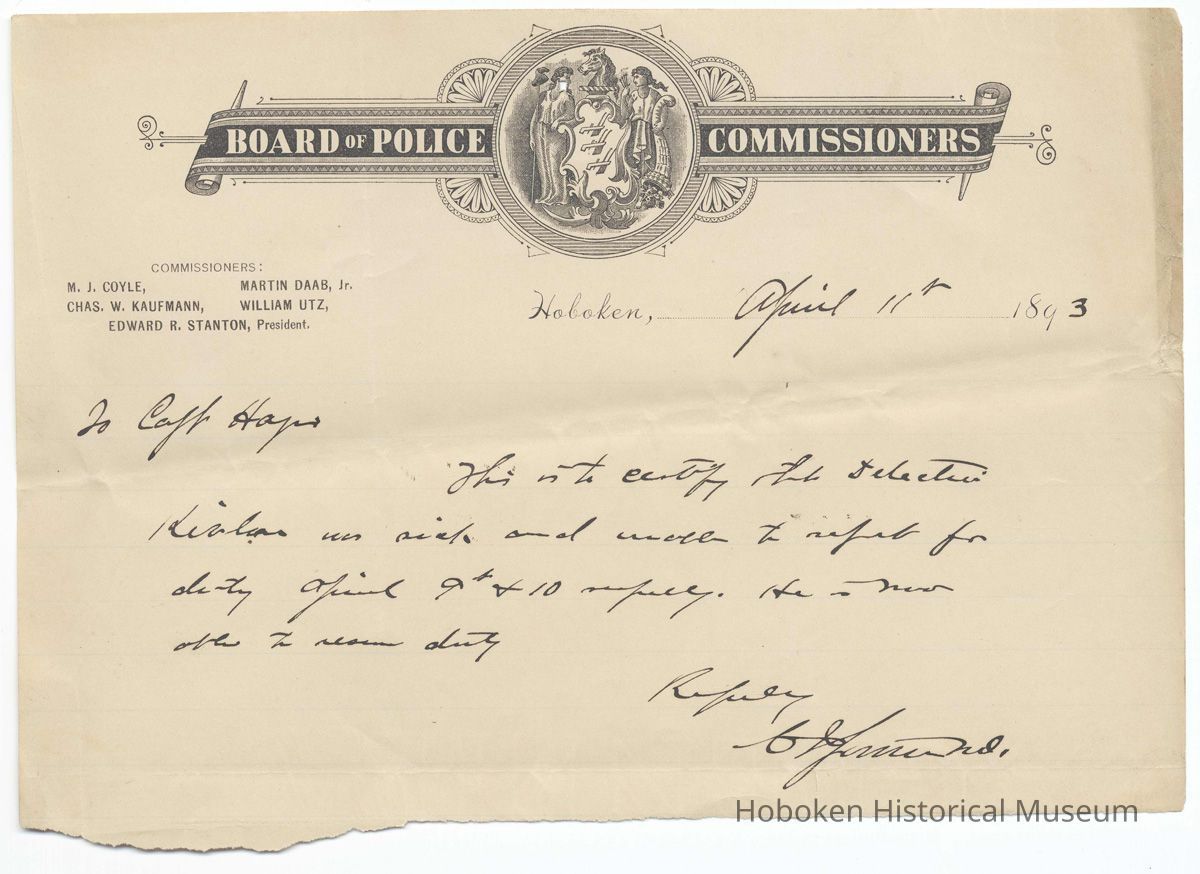 BOARD OF POLICE COMMISSIONERS
COMMISSIONERS:
M. J. COYLE, MARTIN DAAB, Jr.
CHAS. W. KAUFMANN, WILLIAM UTZ,
EDWARD R. STANTON, President.
Hoboken, April 11th 1893
To Capt Hayes
This is to certify that Detective
was sick and unable to report for
duty April 9th & 10 respectly. He is now
able to resume duty
Respectfully
Hoboken Historical Museum